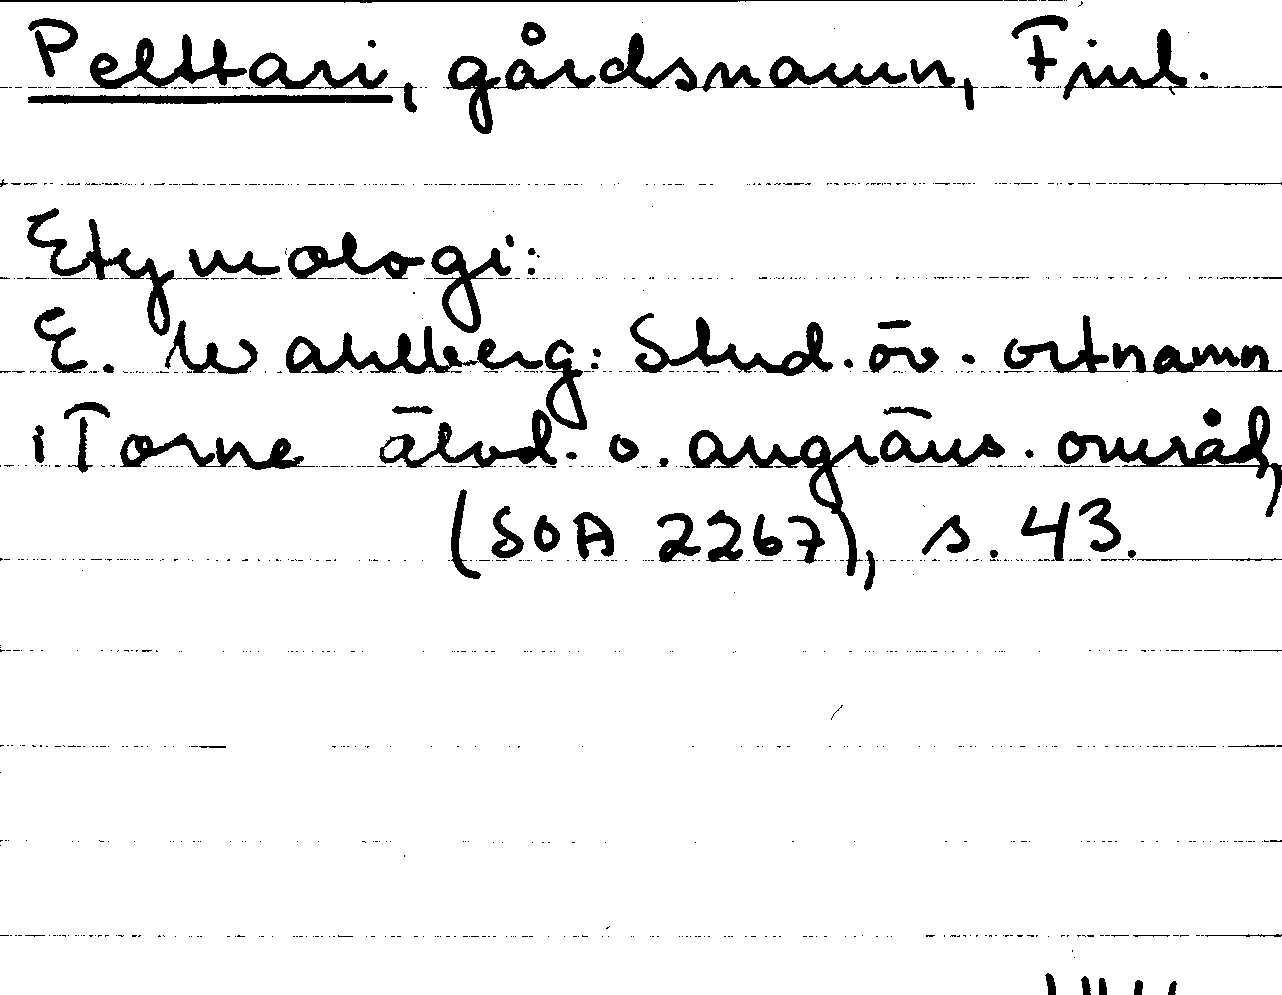 Pelttari, gårdsnamn, Finl.
Etymologi:
E. Wahlberg: Stud. öv. ortnamn
i Torne älvd. o. angräns. områd,
(SOA 2267), s. 43.